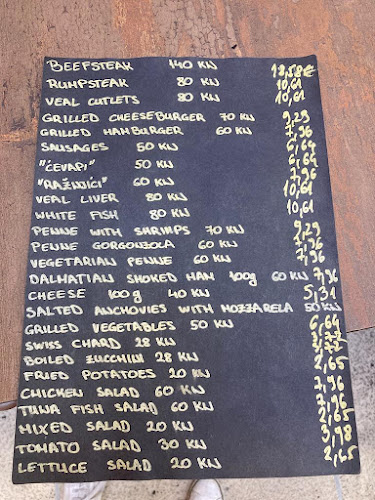 BEEFSTEAK 140 KN 18,58€
RUMPSTEAK 80 KN 10,61
VEAL CUTLETS 80 KN 10,61
GRILLED CHEESEBURGER 70 KN 9,29
GRILLED HAMBURGER 60 KN 7,96
SAUSAGES 50 KN 6,64
"ĆEVAPI" 50 KN 6,64
"RAŽNJIĆI" 60 KN 7,96
VEAL LIVER 80 KN 10,61
WHITE FISH 80 KN 10,61
PENNE WITH SHRIMPS 70 KN 9,29
PENNE GORGONZOLA 60 KN 7,96
VEGETARIAN PENNE 60 KN 7,96
DALMATIAN SMOKED HAM 100g 60 KN 7,96
CHEESE 100g 40 KN 5,31
SALTED ANCHOVIES WITH MOZZARELA 50 KN
GRILLED VEGETABLES 50 KN 6,64
SWISS CHARD 28 KN
BOILED ZUCCHINI 28 KN
FRIED POTATOES 20 KN 2,65
CHICKEN SALAD 60 KN 7,96
TUNA FISH SALAD 60 KN 7,96
MIXED SALAD 20 KN 2,65
TOMATO SALAD 30 KN 3,98
LETTUCE SALAD 20 KN 2,65